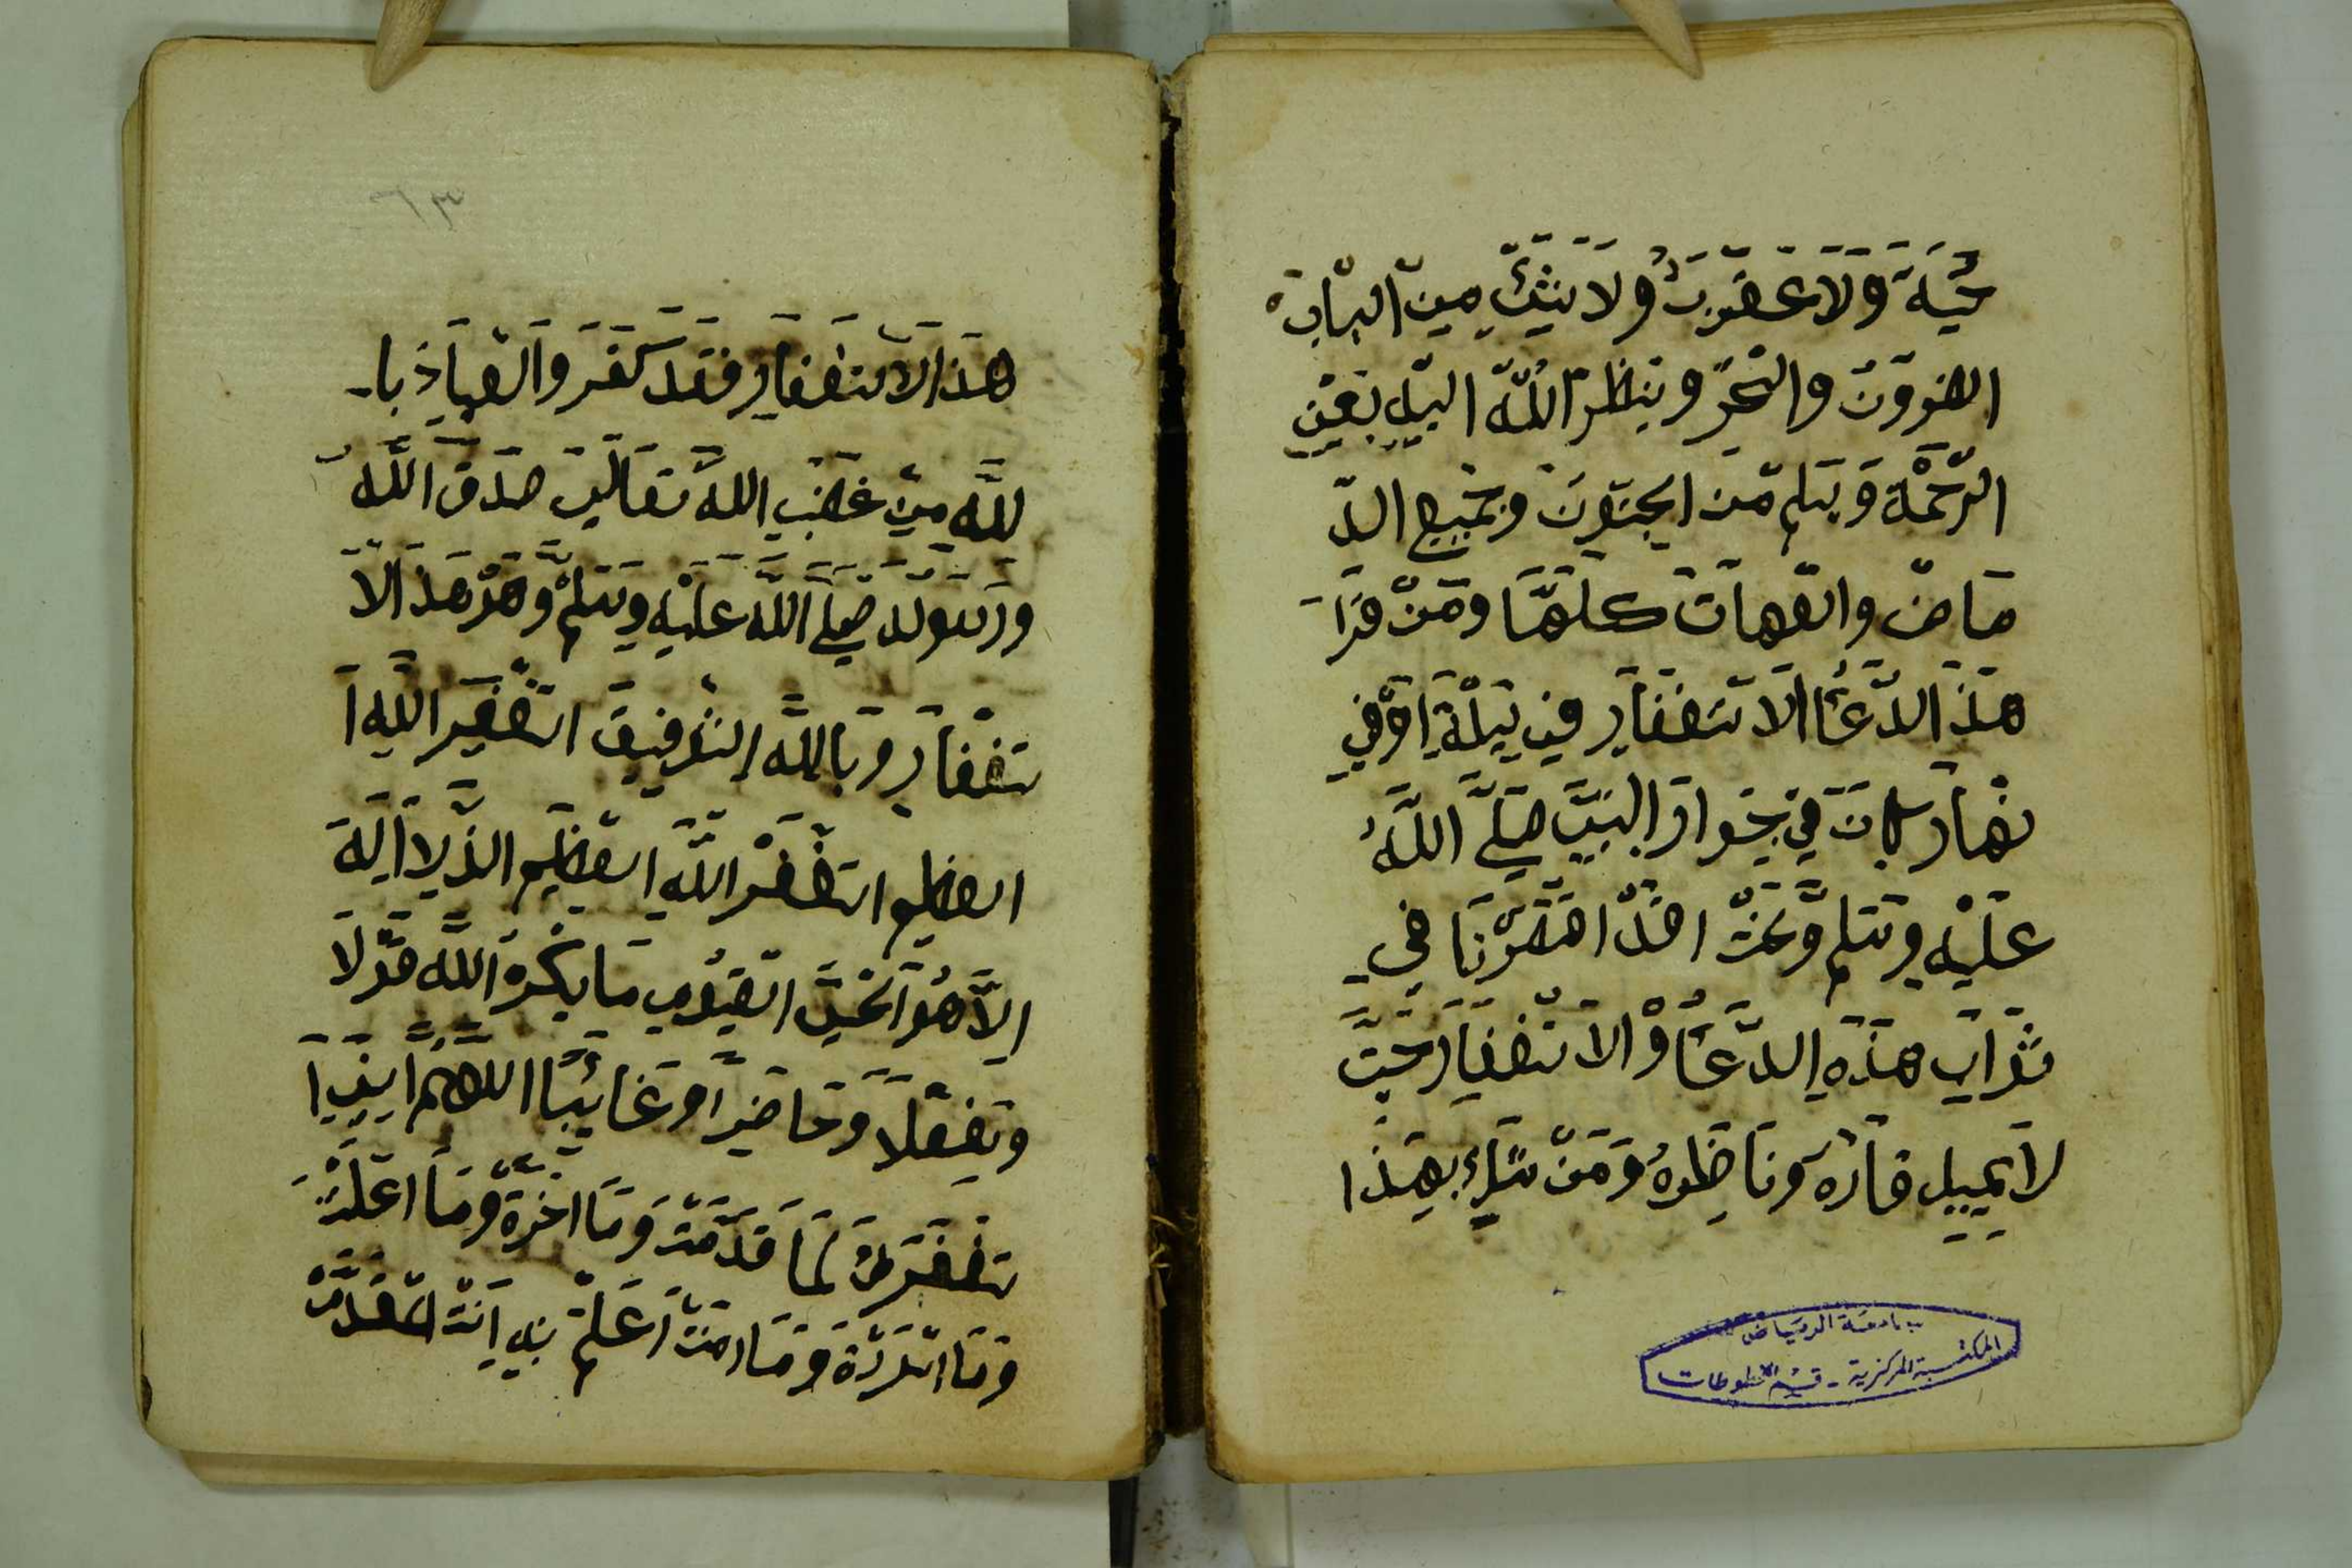 حَيَّةَ وَلَا عَقْرَبٌ وَلَا شَيْءٍ مِنَ الدَّابَّة
وَالْحَرِّ وَيَنْظُرُ اللَّهُ اليهِ بِعَيْنِ
الرَّحْمَةِ وَيَسْلَم مِنَ الجُنُونِ وَجَمِيعِ الد
مَاضِ وَالعَاهَاتِ كُلِّهَا وَمَنْ قَرَا
هَذَا الدُّعَاءُ الاسْتَغْفَارِ فِي لَيْلَةٍ اوْفِي
نَهَارٍ كَانَ فِي جِوَارِ النَّبِيِّ صَلَّى اللَّهُ
عَلَيْهِ وَسَلم وَنَحْنُ اخَذْ اخْتَصَرْنَا فِي
ثَوَابِ هَذِهِ الدُّعَاءُ وْالاسْتَغْفَارِ حَتَّى
لا يَمِيلِ قَارِهُ وَنَاظِرُهُ وَمَنْ شَكَّ بِهَذَا
جامعة الرياض
المكتبة المركزية - قسم المخطوطات
٦٣
هَذَا الاسْتَغْفَارِ فَقَدْ كَفَرَ وَالْعِيَاذَ با
للَّهِ مِنْ غَضَبِ اللَّهِ تَعَالَى صَدَقَ اللَّهُ
وَرَسُولُهُ صَلَّى اللَّهُ عَلَيْهِ وَسَلَّمْ وَهَذْ هَذَ الا
سْتَغْفَارِ وَبَاللَّهِ التَّوْفِيقَ اسْتَغْفِرَ اللَّهِ ا
العظيم اسْتَغْفِرْ اللَّهِ العَظِيمِ الذي لا اَلِهَ
اِلاَّ هُوَ الْحَيَّ القَيُّومِ مَا يَكْرَهُ اللَّهَ قَوْلاً
وَبِفِعْلاً وَحَاضِرًا وَغَائِبًا اللَّهُمَّ اِنِّي ا
سْتَغْفَرَكَ لِمَا قَدَّمْتُ وَمَا اخَّرْةُ وَمَا اعْلَنْتُ
وَمَا اسْرَرْةُ وَمَا انْتَ اَعْلَمْ بِهِ اَنْتَ المُقَدَّمْ